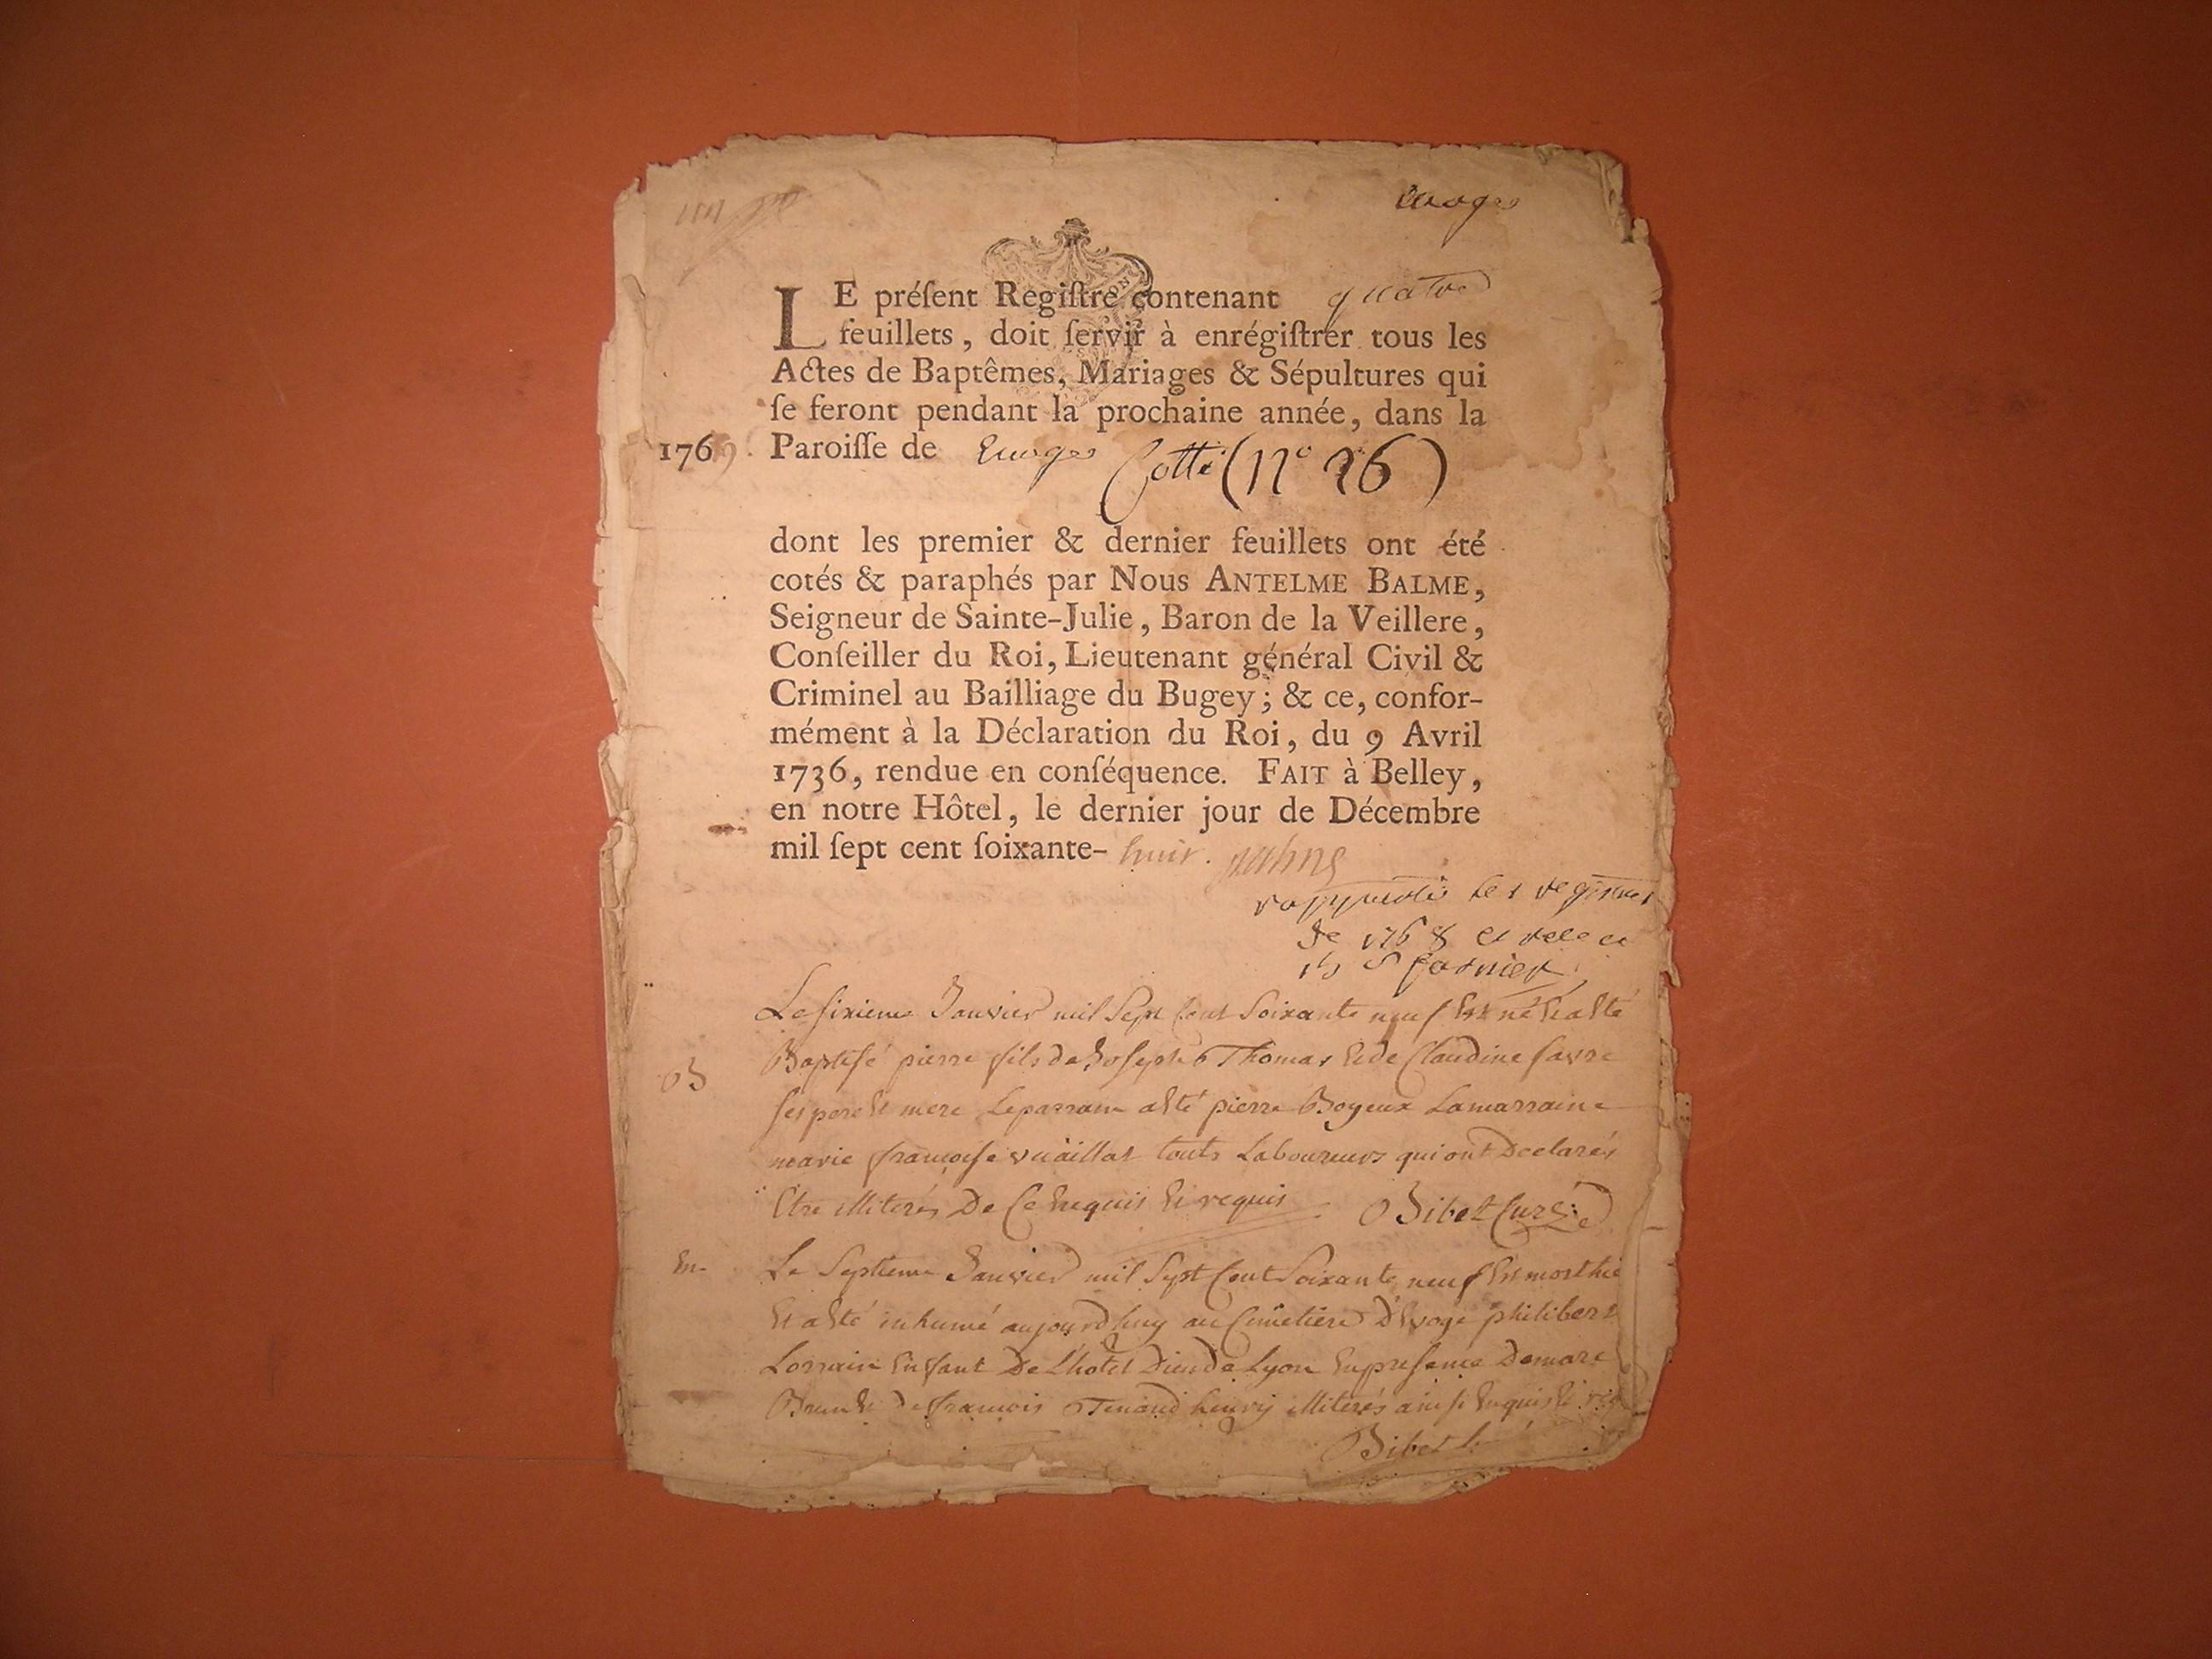 Evoges
LE préſent Regiſtre contenant quatre
feuillets, doit ſervir à enrégiſtrer tous les
Actes de Baptêmes, Mariages & Sépultures qui
ſe feront pendant la prochaine année, dans la
1769. Paroiſſe de Evoges Cotté (N° 26)
dont les premier & dernier feuillets ont été
cotés & paraphés par Nous ANTELME BALME,
Seigneur de Sainte-Julie, Baron de la Veillere,
Conſeiller du Roi, Lieutenant général Civil &
Criminel au Bailliage du Bugey; & ce, confor-
mément à la Déclaration du Roi, du 9 Avril
1736, rendue en conſéquence. FAIT à Belley,
en notre Hôtel, le dernier jour de Décembre
mil ſept cent ſoixante-huit. Balme
rapporté les registres
de 1768
Le sixieme Janvier mil Sept Cent Soixante neuf Est né Et a Eté
B Baptisé pierre fils de Joseph Thomas Et de Claudine favre
ses pere Et mere Le parrain a Eté pierre Boyeux La marraine
marie francoise vuaillat touts Laboureurs qui ont Declarés
Etre illiterés De Ce Enquis Et requis Bibet Curé
m Le Septieme Janvier mil Sept Cent Soixante neuf Est mort hié
Et a Eté inhumé aujourdhuy au Cimetiere D'Evoge philibert
Lorrain Enfant De L'hotel Dieu de Lyon En presence De marc
Brun Et De francois Tenand henry illiterés ainsi Enquis Et
Bibet